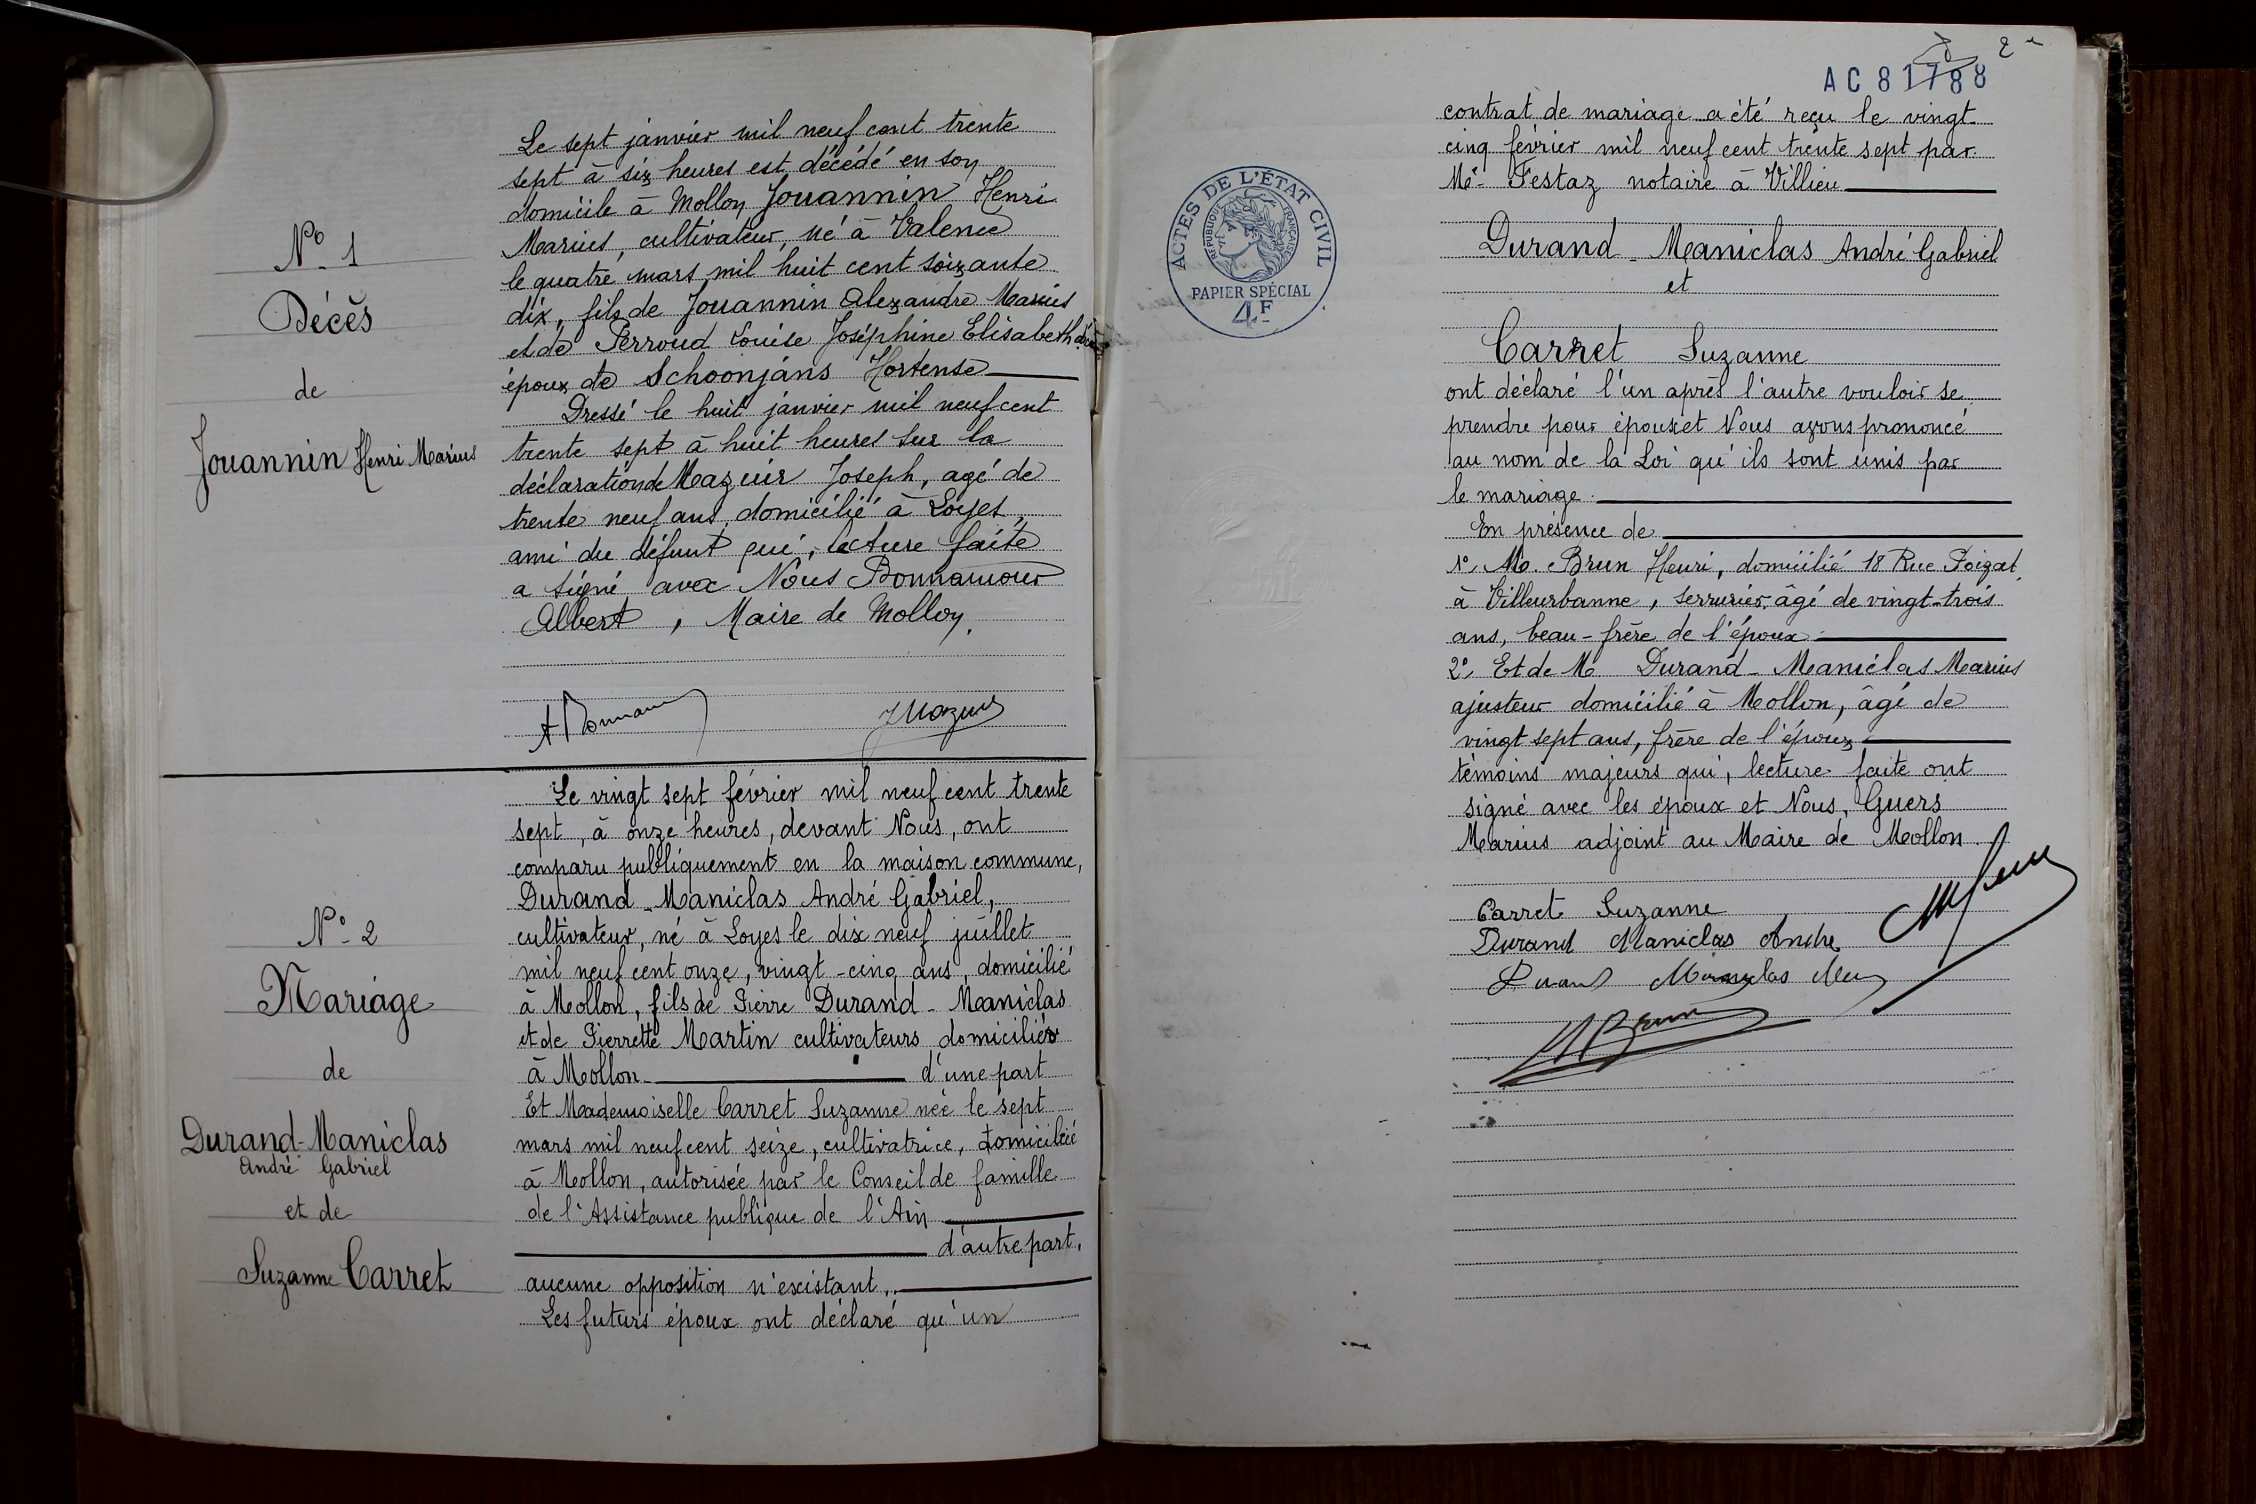 N° 1
Décès
de
Jouannin Henri Marius
Le sept janvier mil neuf cent trente
sept à six heures est décédé en son
domicile à Mollon Jouannin Henri
Marius, cultivateur, né à Valence
le quatre mars mil huit cent soixante
dix, fils de Jouannin Alexandre Marius
et de Perroud Louise Joséphine Elisabeth
époux de Schoonjans Hortense
Dressé le huit janvier mil neuf cent
trente sept à huit heures sur la
déclaration de Mazuir Joseph, agé de
trente neuf ans, domicilié à Loyes,
ami du défunt qui, lecture faite
a signé avec Nous Bonnamour
Albert, Maire de Mollon.
A Bonnamour
J Mazuir
N° 2
Mariage
de
Durand-Maniclas
André Gabriel
et de
Suzanne Carret
Le vingt sept février mil neuf cent trente
sept, à onze heures, devant Nous, ont
comparu publiquement en la maison commune,
Durand-Maniclas André Gabriel,
cultivateur, né à Loyes le dix neuf juillet
mil neuf cent onze, vingt-cinq ans, domicilié
à Mollon, fils de Pierre Durand-Maniclas
et de Pierrette Martin cultivateurs domiciliés
à Mollon d'une part
Et Mademoiselle Carret Suzanne née le sept
mars mil neuf cent seize, cultivatrice, domiciliée
à Mollon, autorisée par le Conseil de famille
de l'Assistance publique de l'Ain
d'autre part.
aucune opposition n'existant.
Les futurs époux ont déclaré qu'un
2e
AC 81788
ACTES DE L'ÉTAT CIVIL
RÉPUBLIQUE FRANÇAISE
PAPIER SPÉCIAL
4F
contrat de mariage a été reçu le vingt
cinq février mil neuf cent trente sept par
Me Festaz notaire à Villieu
Durand-Maniclas André Gabriel
et
Carret Suzanne
ont déclaré l'un après l'autre vouloir se
prendre pour époux et Nous avons prononcé
au nom de la Loi qu'ils sont unis par
le mariage.
En présence de
1°, M. Brun Henri, domicilié 18 Rue Poizat
à Villeurbanne, serrurier, âgé de vingt-trois
ans, beau-frère de l'époux
2°, Et de M Durand-Maniclas Marius
ajusteur domicilié à Mollon, âgé de
vingt sept ans, frère de l'époux
témoins majeurs qui, lecture faite ont
signé avec les époux et Nous, Guers
Marius adjoint au Maire de Mollon.
Carret Suzanne
Durand Maniclas Andre
Durand Maniclas
M Guers
H Brun